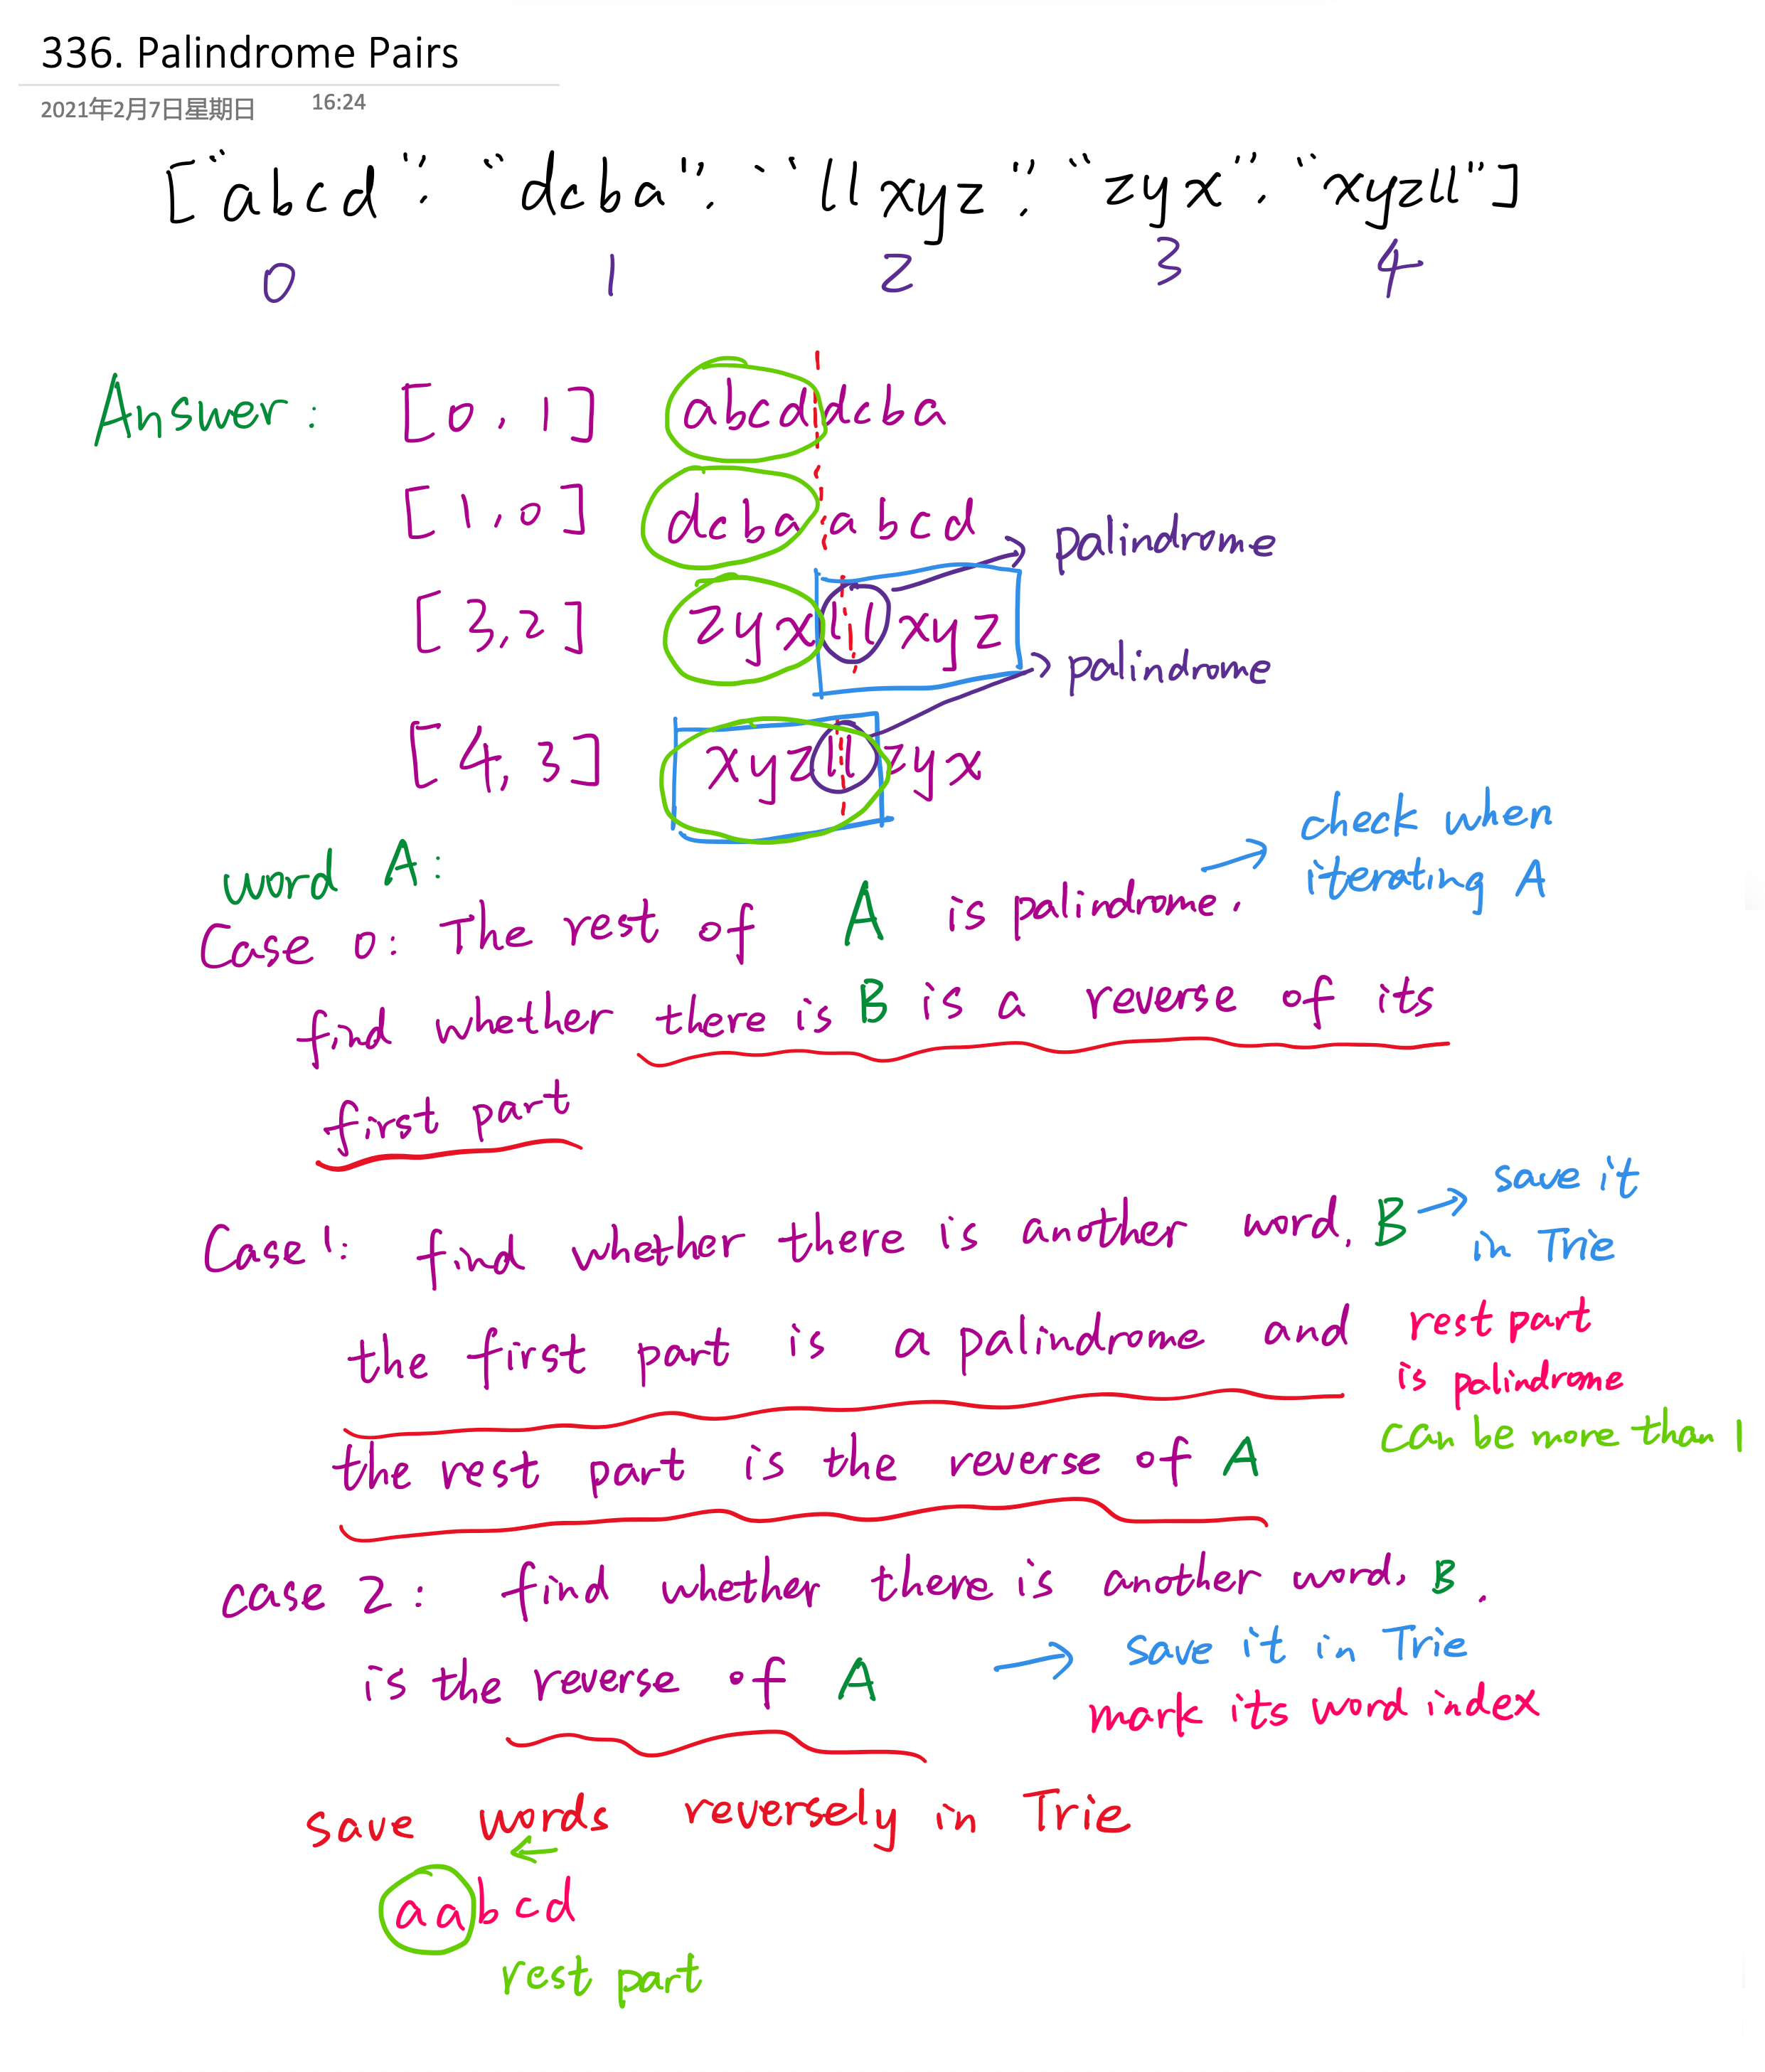 336. Palindrome Pairs
2021年2月7日星期日 16:24
["abcd", "dcba", "llxyz", "zyx", "xyzll"]
0 1 2 3 4
Answer: [0, 1] abcddcba
[1,0] dcbaabcd
palindrome
[3,2] zyxllxyz
palindrome
[4,3] xyzllzyx
word A:
check when
iterating A
Case 0: The rest of A is palindrome.
find whether there is B is a reverse of its
first part
Case 1: find whether there is another word. B
save it
in Trie
the first part is a palindrome and
rest part
is palindrome
can be more than 1
the rest part is the reverse of A
case 2: find whether there is another word. B.
is the reverse of A
save it in Trie
mark its word index
save words reversely in Trie
aabcd
rest part